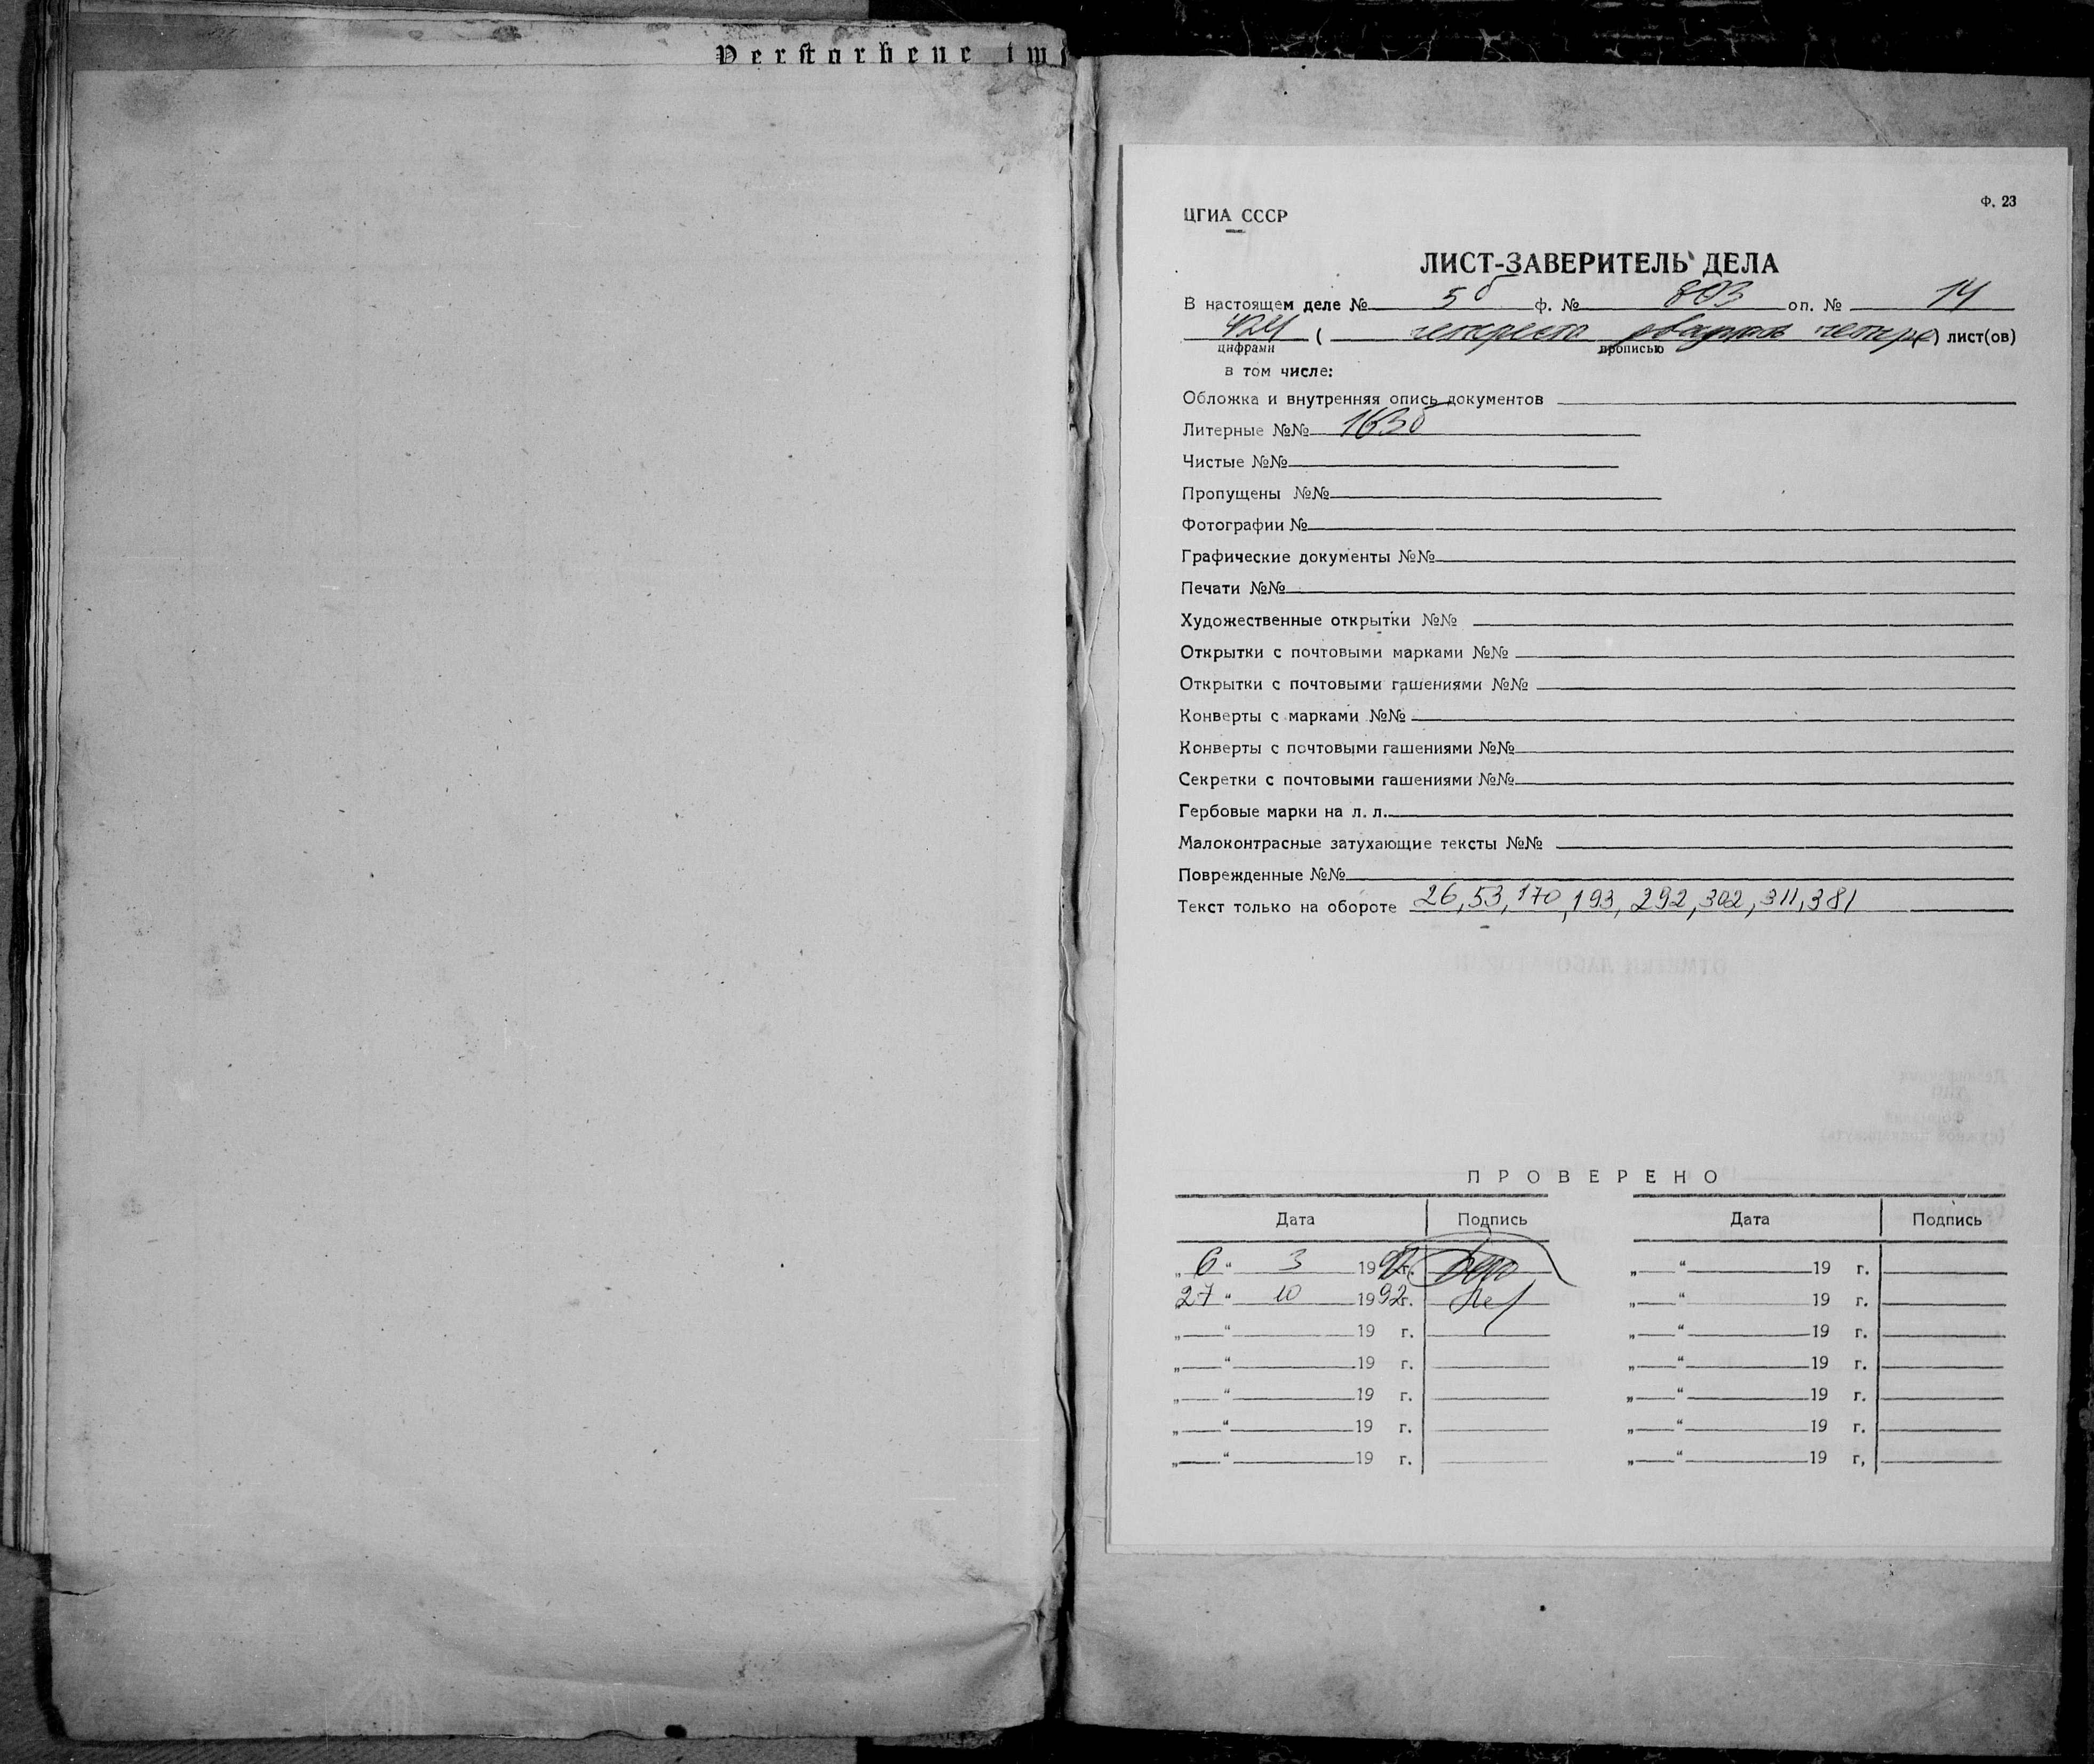 Verstorbene im
Ф. 23
ЦГИА СССР
ЛИСТ-ЗАВЕРИТЕЛЬ ДЕЛА
В настоящем деле № 5б ф. № 803 оп. № 14
424 ( четыреста двадцать четыре ) лист(ов)
цифрами прописью
в том числе:
Обложка и внутренняя опись документов
Литерные №№ 163б
Чистые №№
Пропущены №№
Фотографии №
Графические документы №№
Печати №№
Художественные открытки №№
Открытки с почтовыми марками №№
Открытки с почтовыми гашениями №№
Конверты с марками №№
Конверты с почтовыми гашениями №№
Секретки с почтовыми гашениями №№
Гербовые марки на л. л.
Малоконтрасные затухающие тексты №№
Поврежденные №№
Текст только на обороте 26, 53, 170, 193, 292, 302, 311, 381
ПРОВЕРЕНО
Дата Подпись Дата Подпись
„ 6 “ 3 1992 г. „ “ 19 г.
„ 27 “ 10 1992 г. „ “ 19 г.
„ “ 19 г. „ “ 19 г.
„ “ 19 г. „ “ 19 г.
„ “ 19 г. „ “ 19 г.
„ “ 19 г. „ “ 19 г.
„ “ 19 г. „ “ 19 г,